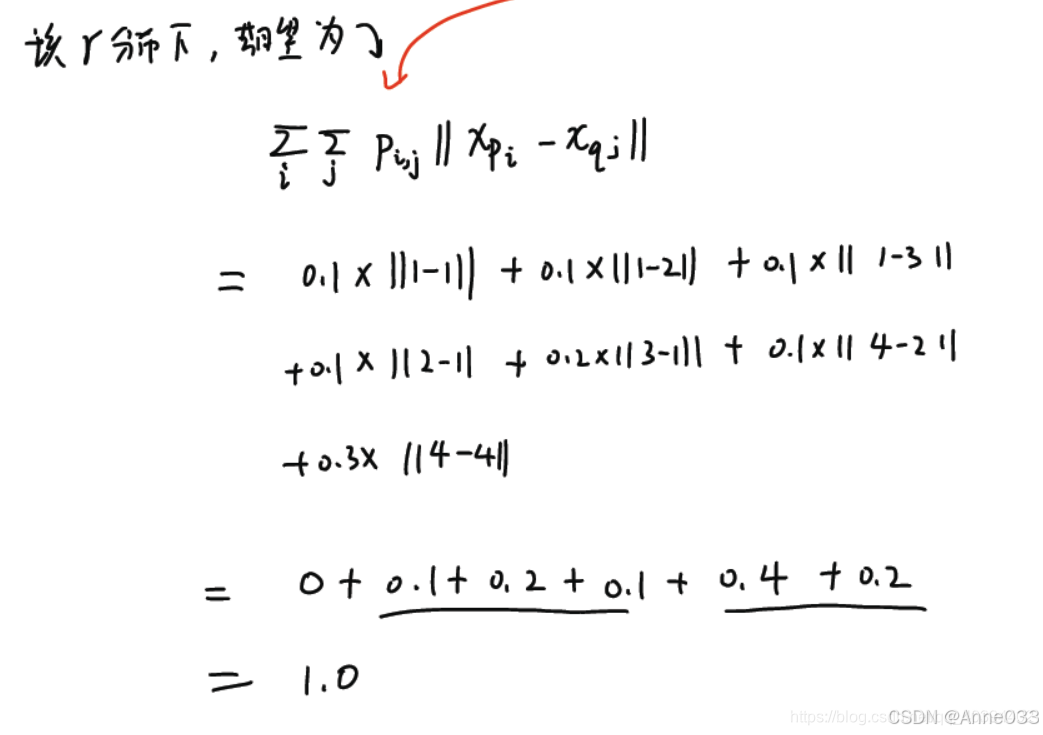 该γ分布下，期望为
∑i ∑j Pi,j ‖ xpi - xqj ‖
= 0.1 × ||1-1|| + 0.1 × ||1-2|| + 0.1 × || 1-3 ||
+0.1 × ||2-1|| + 0.2×||3-1|| + 0.1×|| 4-2 ||
+0.3× ||4-4||
= 0 + 0.1 + 0.2 + 0.1 + 0.4 + 0.2
= 1.0
CSDN @Anne033